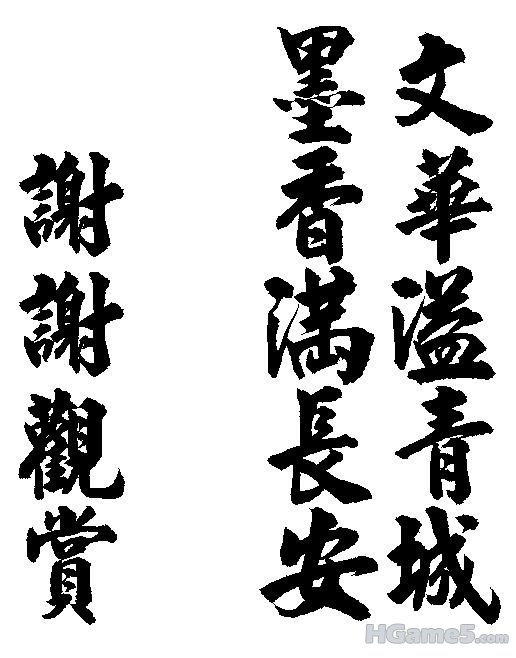 文華溢青城
墨香满長安
謝謝觀賞
HGame5.com